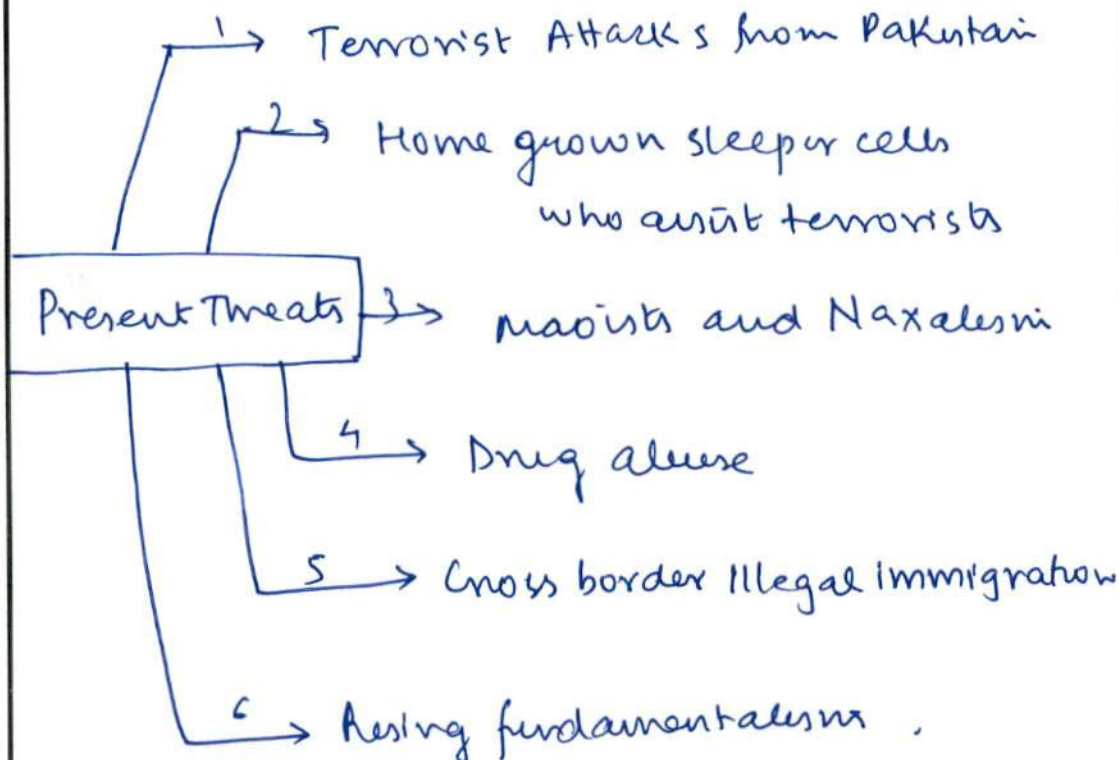 1 Terrorist Attacks from Pakistan
2 Home grown sleeper cells
who assist terrorists
Present Threats 3 Maoists and Naxalism
4 Drug abuse
5 Cross border Illegal immigration
6 Rising fundamentalism .